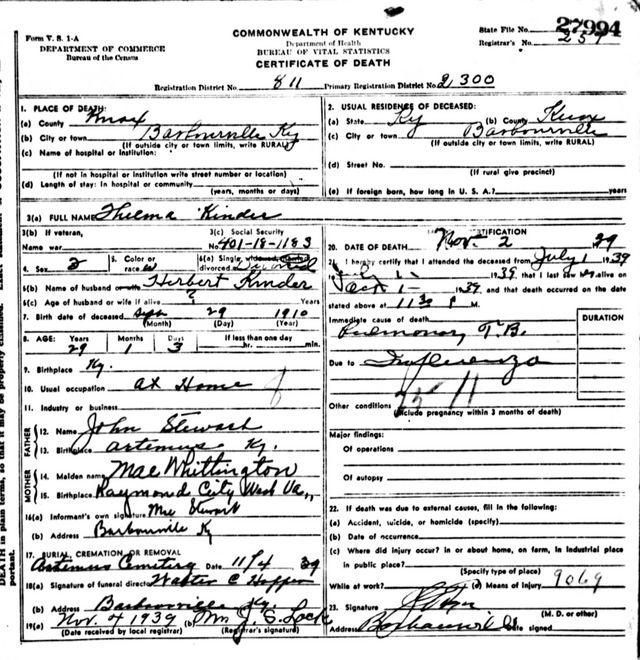 Form V. S. 1-A
DEPARTMENT OF COMMERCE
Bureau of the Census
COMMONWEALTH OF KENTUCKY
Department of Health
BUREAU OF VITAL STATISTICS
CERTIFICATE OF DEATH
State File No. 27994
Registrar's No. 257
Registration District No. 811 Primary Registration District No. 2300
1. PLACE OF DEATH:
(a) County Knox
(b) City or town Barbourville Ky
(If outside city or town limits, write RURAL)
(c) Name of hospital or institution:
(If not in hospital or institution write street number or location)
(d) Length of stay: In hospital or community
(years, months or days)
2. USUAL RESIDENCE OF DECEASED:
(a) State Ky (b) County Knox
(c) City or town Barbourville
(If outside city or town limits, write RURAL)
(d) Street No.
(If rural give precinct)
(e) If foreign born, how long in U. S. A.? years
3(a) FULL NAME Thelma Kinder
3(b) If veteran,
Name war
3(c) Social Security
No. 401-18-1183
4. Sex 2 5. Color or
race w 6(a) Single, widowed, married,
divorced Divorced
6(b) Name of husband or wife Herbert Kinder
6(c) Age of husband or wife if alive ? Years
7. Birth date of deceased Sept 29 1910
(Month) (Day) (Year)
8. AGE: Years Months Days If less than one day
29 1 3 hr. min.
9. Birthplace Ky.
10. Usual occupation at Home
11. Industry or business
FATHER
12. Name John Stewart
13. Birthplace Artemus Ky.
MOTHER
14. Maiden name Mae Whittington
15. Birthplace Raymond City West Va.,
16(a) Informant's own signature Mae Stewart
(b) Address Barbourville Ky
17. BURIAL, CREMATION OR REMOVAL
Artemus Cemetery Date 11/4 39
18(a) Signature of funeral director Walter C
(b) Address Barbourville Ky.
19(a) Nov. 4 1939 (b) Mrs J. S. Lock
(Date received by local registrar) (Registrar's signature)
CERTIFICATION
20. DATE OF DEATH Nov. 2 39
21. I hereby certify that I attended the deceased from July 1 1939
1939, that I last saw alive on
1- 1939, and that death occurred on the date
stated above at 11 30 P M.
Immediate cause of death
DURATION
Pulmonary T.B.
Due to Influenza
Other conditions
(Include pregnancy within 3 months of death)
Major findings:
Of operations
Of autopsy
22. If death was due to external causes, fill in the following:
(a) Accident, suicide, or homicide (specify)
(b) Date of occurrence
(c) Where did injury occur? in or about home, on farm, in industrial place
in public place?
(Specify type of place)
While at work? (e) Means of injury 9069
23. Signature
(M. D. or other)
Address Barbourville Date signed